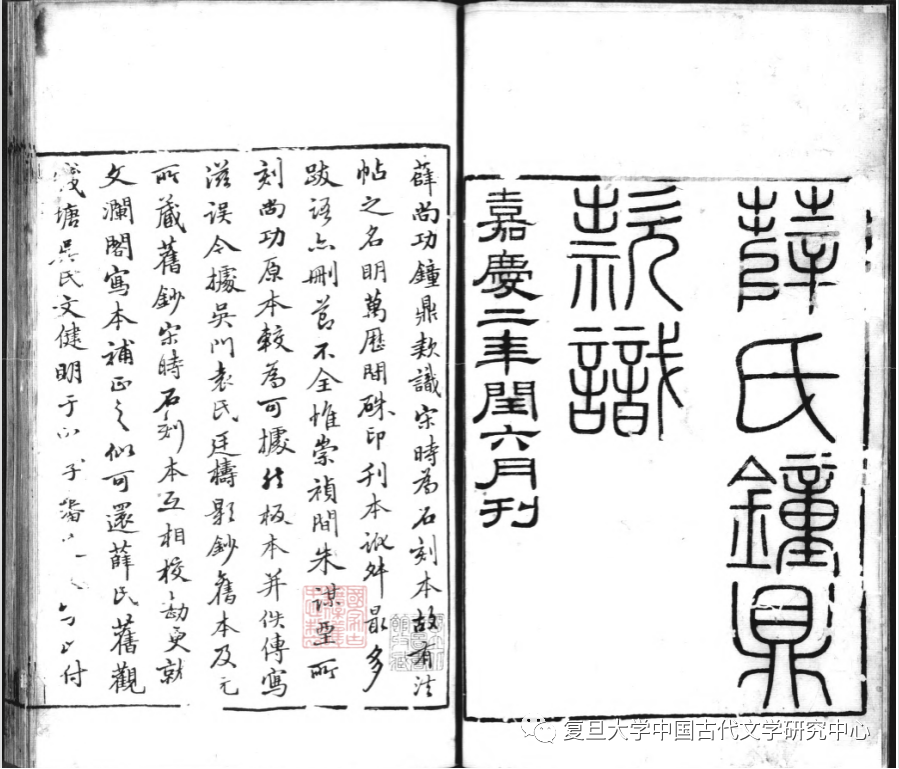 薛氏鐘鼎
款識
嘉慶二年閏六月刊
薛尚功鐘鼎欵識宋時為石刻本故有法
帖之名明萬厯間硃印刊本訛舛最多
跋語亦刪節不全惟崇禎間朱謀垔所
刻尚功原本較為可據然板本并佚傳寫
滋誤今據吳門袁氏廷檮影鈔舊本及元
所藏舊鈔宋時石刻本互相校勘更就
文瀾閣寫本補正之似可還薛氏舊觀
錢塘吳氏文健明于付
复旦大学中国古代文学研究中心